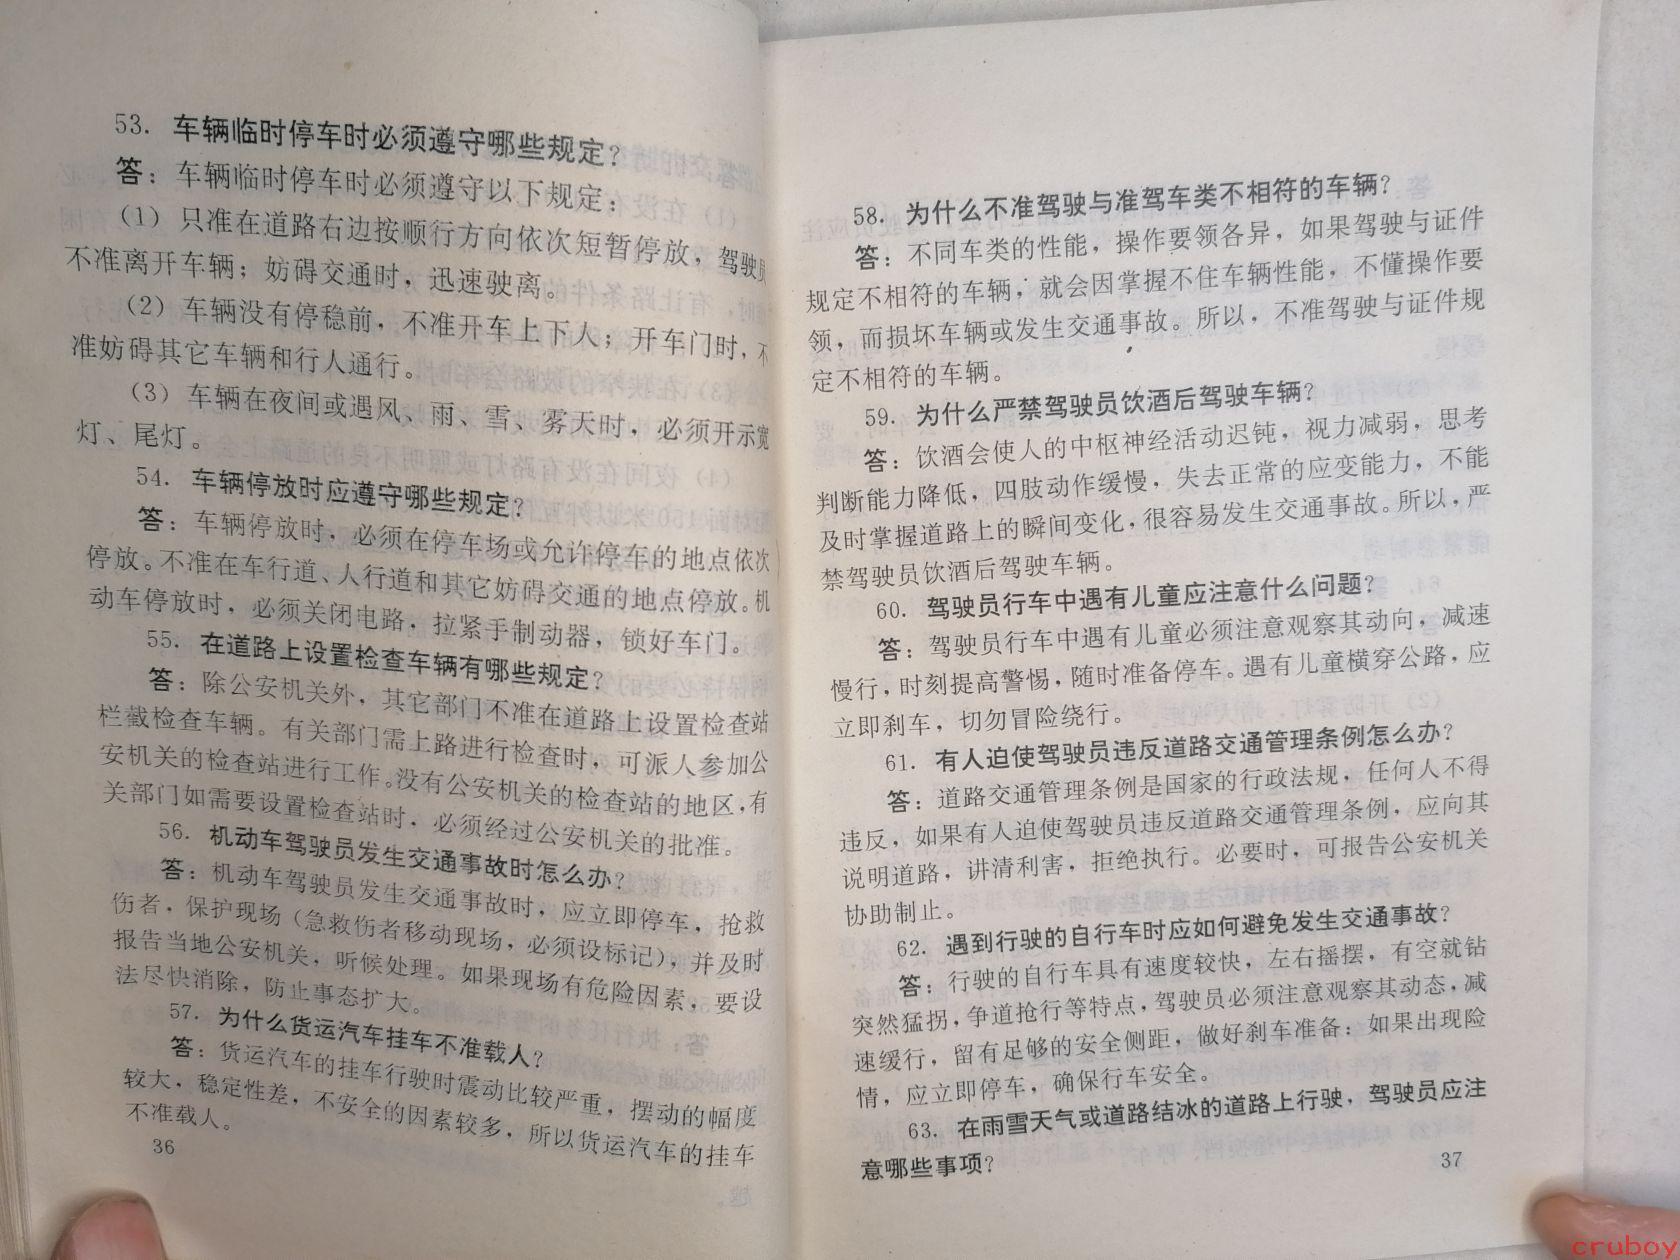 53. 车辆临时停车时必须遵守哪些规定?
答：车辆临时停车时必须遵守以下规定：
(1) 只准在道路右边按顺行方向依次短暂停放，驾驶员
不准离开车辆；妨碍交通时，迅速驶离。
(2) 车辆没有停稳前，不准开车上下人；开车门时，不
准妨碍其它车辆和行人通行。
(3) 车辆在夜间或遇风、雨、雪、雾天时，必须开示宽
灯、尾灯。
54. 车辆停放时应遵守哪些规定?
答：车辆停放时，必须在停车场或允许停车的地点依次
停放。不准在车行道、人行道和其它妨碍交通的地点停放。机
动车停放时，必须关闭电路，拉紧手制动器，锁好车门。
55. 在道路上设置检查车辆有哪些规定?
答：除公安机关外，其它部门不准在道路上设置检查站
栏截检查车辆。有关部门需上路进行检查时，可派人参加公
安机关的检查站进行工作。没有公安机关的检查站的地区，有
关部门如需要设置检查站时，必须经过公安机关的批准。
56. 机动车驾驶员发生交通事故时怎么办?
答：机动车驾驶员发生交通事故时，应立即停车，抢救
伤者，保护现场（急救伤者移动现场，必须设标记），并及时
报告当地公安机关，听候处理。如果现场有危险因素，要设
法尽快消除，防止事态扩大。
57. 为什么货运汽车挂车不准载人?
答：货运汽车的挂车行驶时震动比较严重，摆动的幅度
较大，稳定性差，不安全的因素较多，所以货运汽车的挂车
不准载人。
36
58. 为什么不准驾驶与准驾车类不相符的车辆?
答：不同车类的性能，操作要领各异，如果驾驶与证件
规定不相符的车辆，就会因掌握不住车辆性能，不懂操作要
领，而损坏车辆或发生交通事故。所以，不准驾驶与证件规
定不相符的车辆。
59. 为什么严禁驾驶员饮酒后驾驶车辆?
答：饮酒会使人的中枢神经活动迟钝，视力减弱，思考
判断能力降低，四肢动作缓慢，失去正常的应变能力，不能
及时掌握道路上的瞬间变化，很容易发生交通事故。所以，严
禁驾驶员饮酒后驾驶车辆。
60. 驾驶员行车中遇有儿童应注意什么问题?
答：驾驶员行车中遇有儿童必须注意观察其动向，减速
慢行，时刻提高警惕，随时准备停车。遇有儿童横穿公路，应
立即刹车，切勿冒险绕行。
61. 有人迫使驾驶员违反道路交通管理条例怎么办?
答：道路交通管理条例是国家的行政法规，任何人不得
违反，如果有人迫使驾驶员违反道路交通管理条例，应向其
说明道路，讲清利害，拒绝执行。必要时，可报告公安机关
协助制止。
62. 遇到行驶的自行车时应如何避免发生交通事故?
答：行驶的自行车具有速度较快，左右摇摆，有空就钻
突然猛拐，争道抢行等特点，驾驶员必须注意观察其动态，减
速缓行，留有足够的安全侧距，做好刹车准备：如果出现险
情，应立即停车，确保行车安全。
63. 在雨雪天气或道路结冰的道路上行驶，驾驶员应注
意哪些事项?
37
cruboy